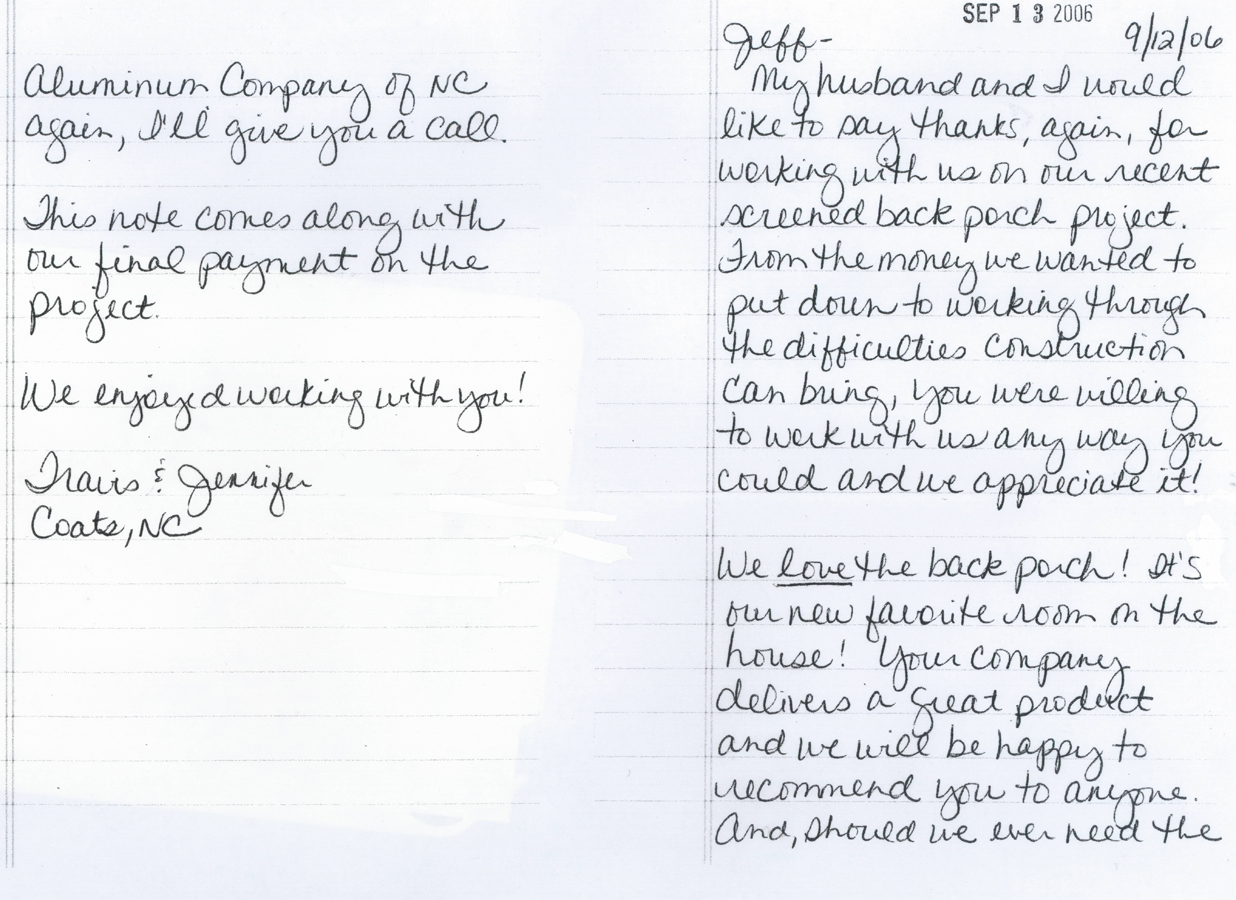 SEP 13 2006
9/12/06
Jeff-
My husband and I would
like to say thanks, again, for
working with us on our recent
screened back porch project.
From the money we wanted to
put down to working through
the difficulties construction
can bring, you were willing
to work with us any way you
could and we appreciate it!
We love the back porch! It's
our new favorite room on the
house! Your company
delivers a great product
and we will be happy to
recommend you to anyone.
And, should we ever need the
Aluminum Company of NC
again, I'll give you a call.
This note comes along with
our final payment on the
project.
We enjoyed working with you!
Travis & Jennifer
Coats, NC